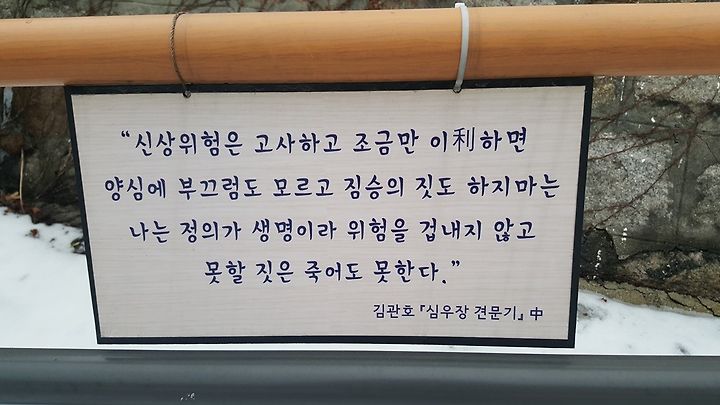 “신상위험은 고사하고 조금만 이利하면
양심에 부끄럼도 모르고 짐승의 짓도 하지마는
나는 정의가 생명이라 위험을 겁내지 않고
못할 짓은 죽어도 못한다.”
김관호 『심우장 견문기』 中